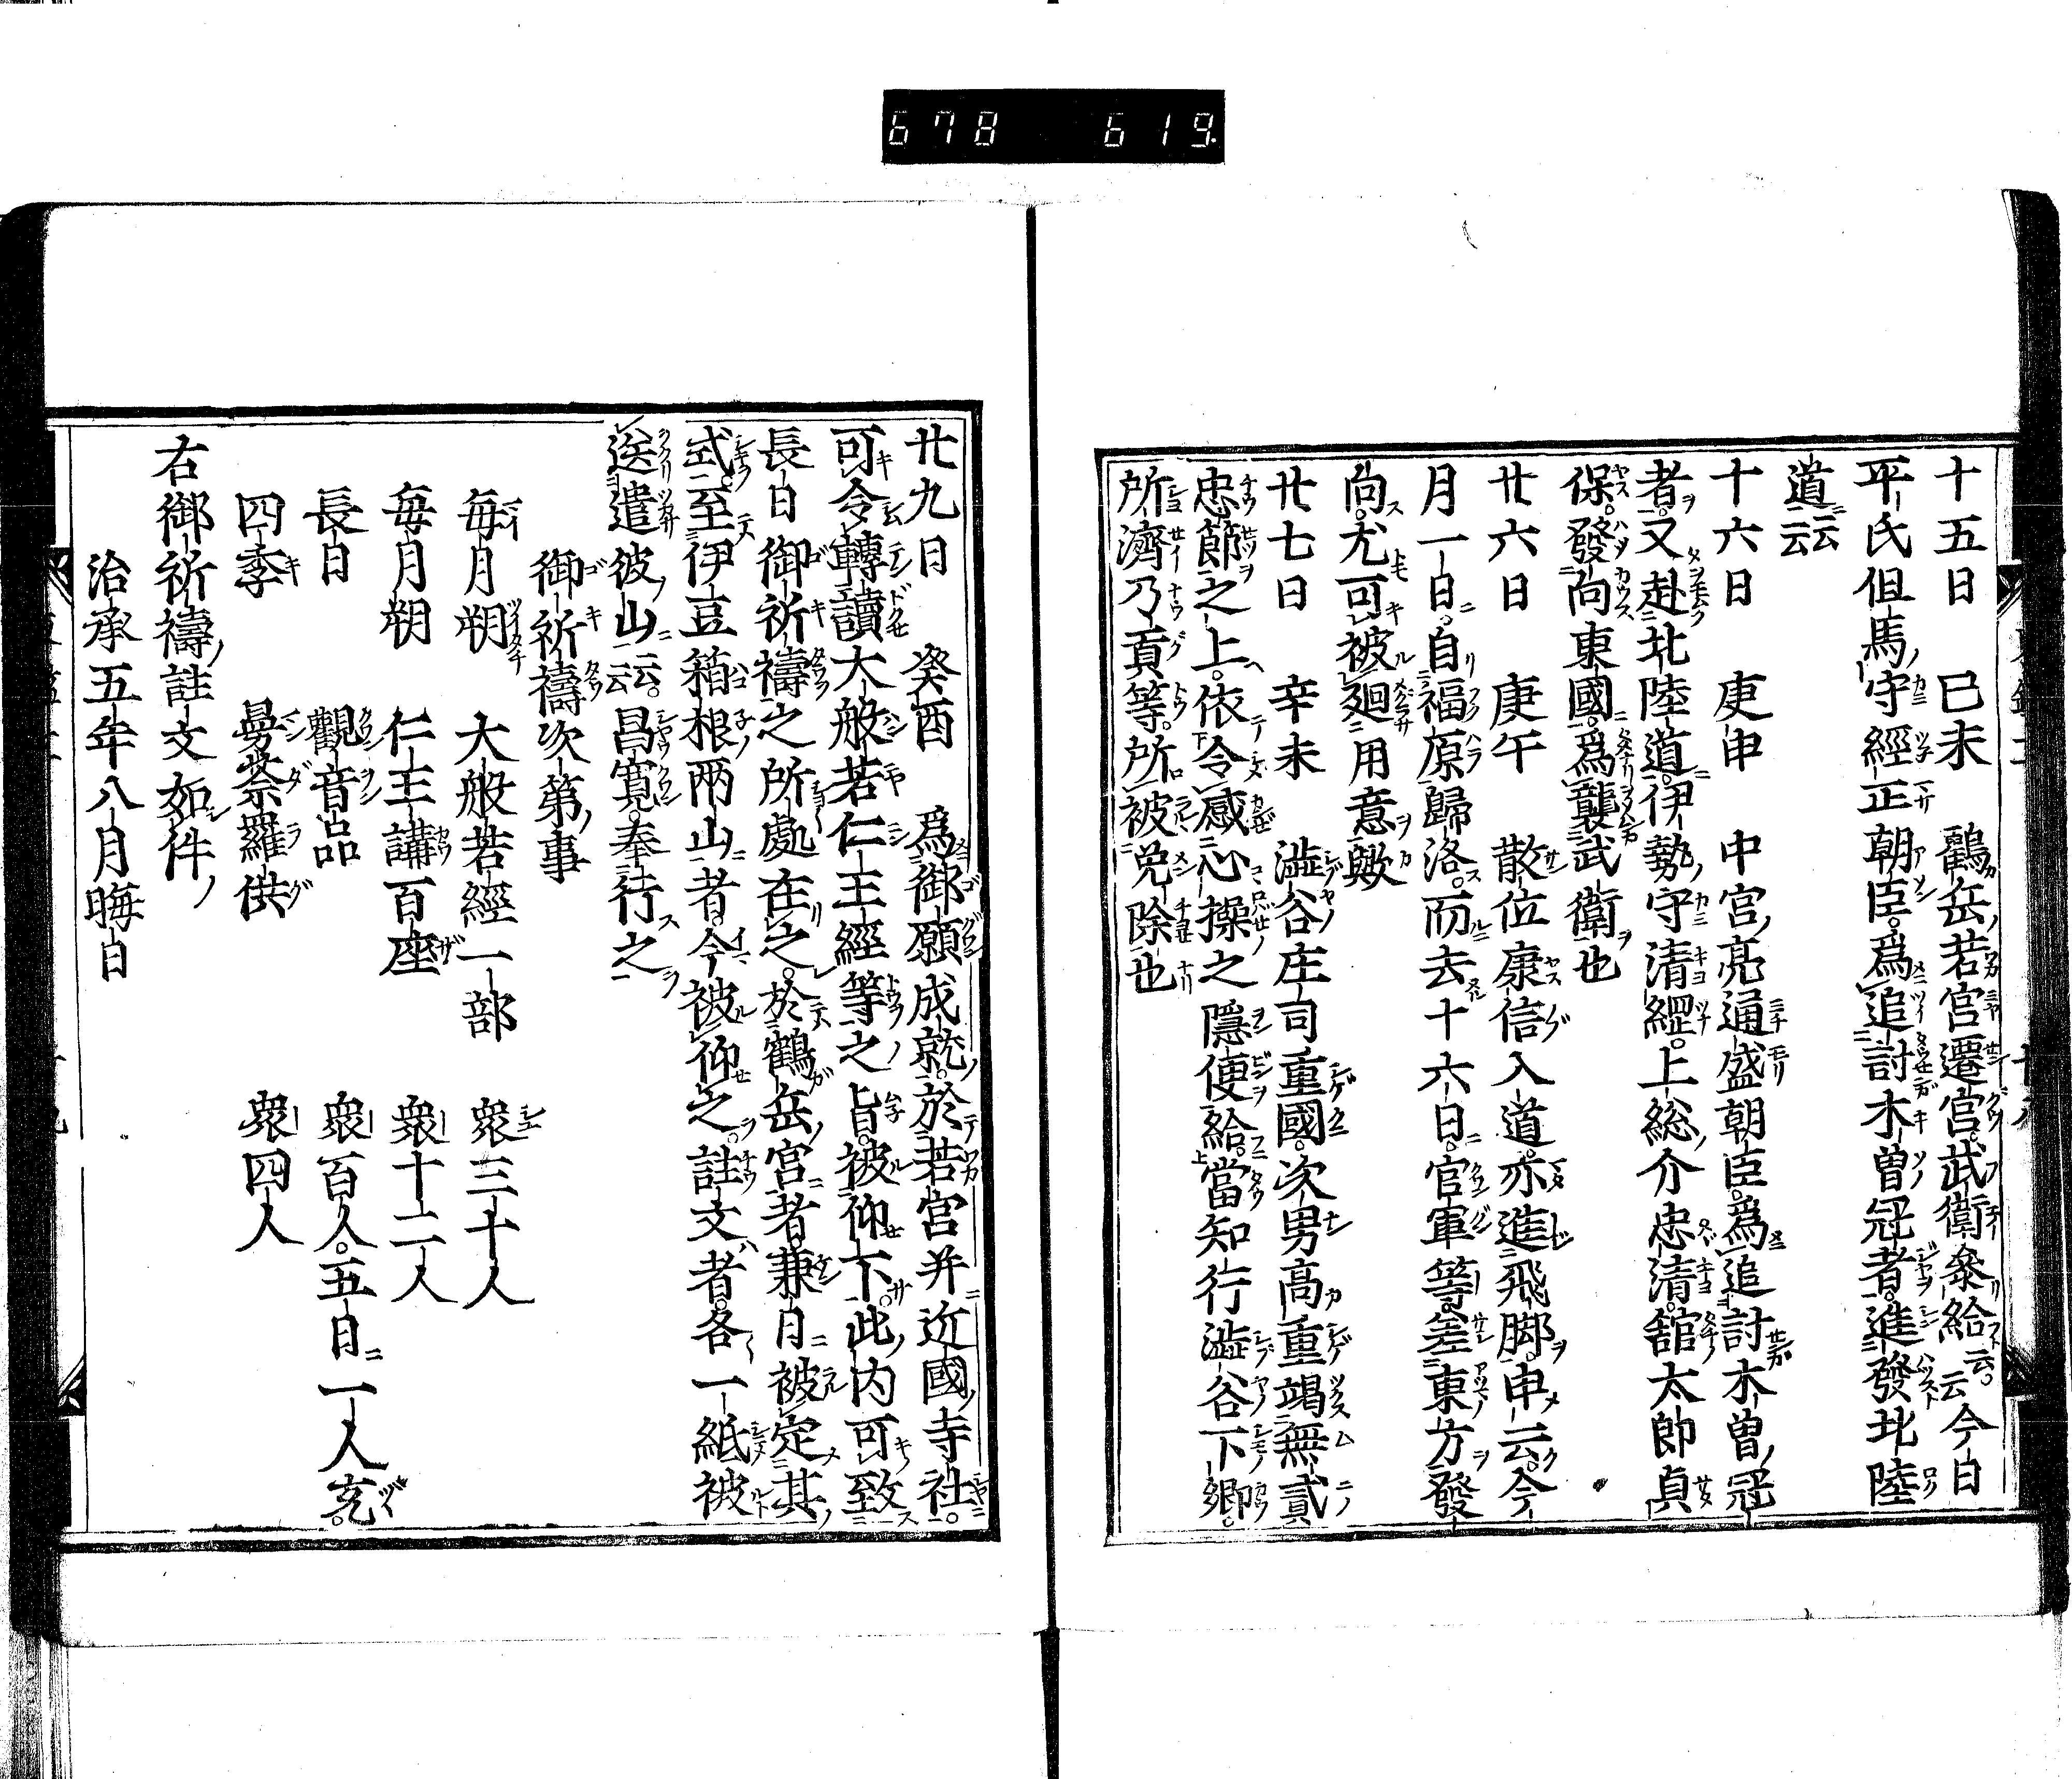 678 619
十五日 巳未 鸖岳若宮遷宮武衛參給云云今日
平氏但馬守經正朝臣爲追討木曽冠者進發北陸
道云云
十六日 庚申 中宮亮通盛朝臣爲追討木曽冠
者又赴北陸道伊勢守清綱上総介忠清舘太郎貞
保發向東國爲襲武衛也
廿六日 庚午 散位康信入道亦進飛脚申云今
月一日自福原歸洛而去十六日官軍等差東方發
向尤可被廻用意歟
廿七日 辛未 澁谷庄司重國次男高重竭無貳
忠節之上依令感心操之隱便給當知行澁谷下郷
所濟乃貢等所被免除也
廿九日 癸酉 爲御願成就於若宮并近國寺社
可令轉讀大般若仁王經等之旨被仰下此内可致
長日御祈禱之所處在之於鶴岳宮者兼日被定其
式至伊豆箱根兩山者今被仰之註文者各一紙被
送遣彼山云云昌寛奉行之
御祈禱次第事
毎月朔 大般若經一部 衆三十人
毎月朔 仁王講百座 衆十二人
長日 觀音品 衆百人五日二一人充
四季 曼荼羅供 衆四人
右御祈禱註文如件
治承五年八月晦日